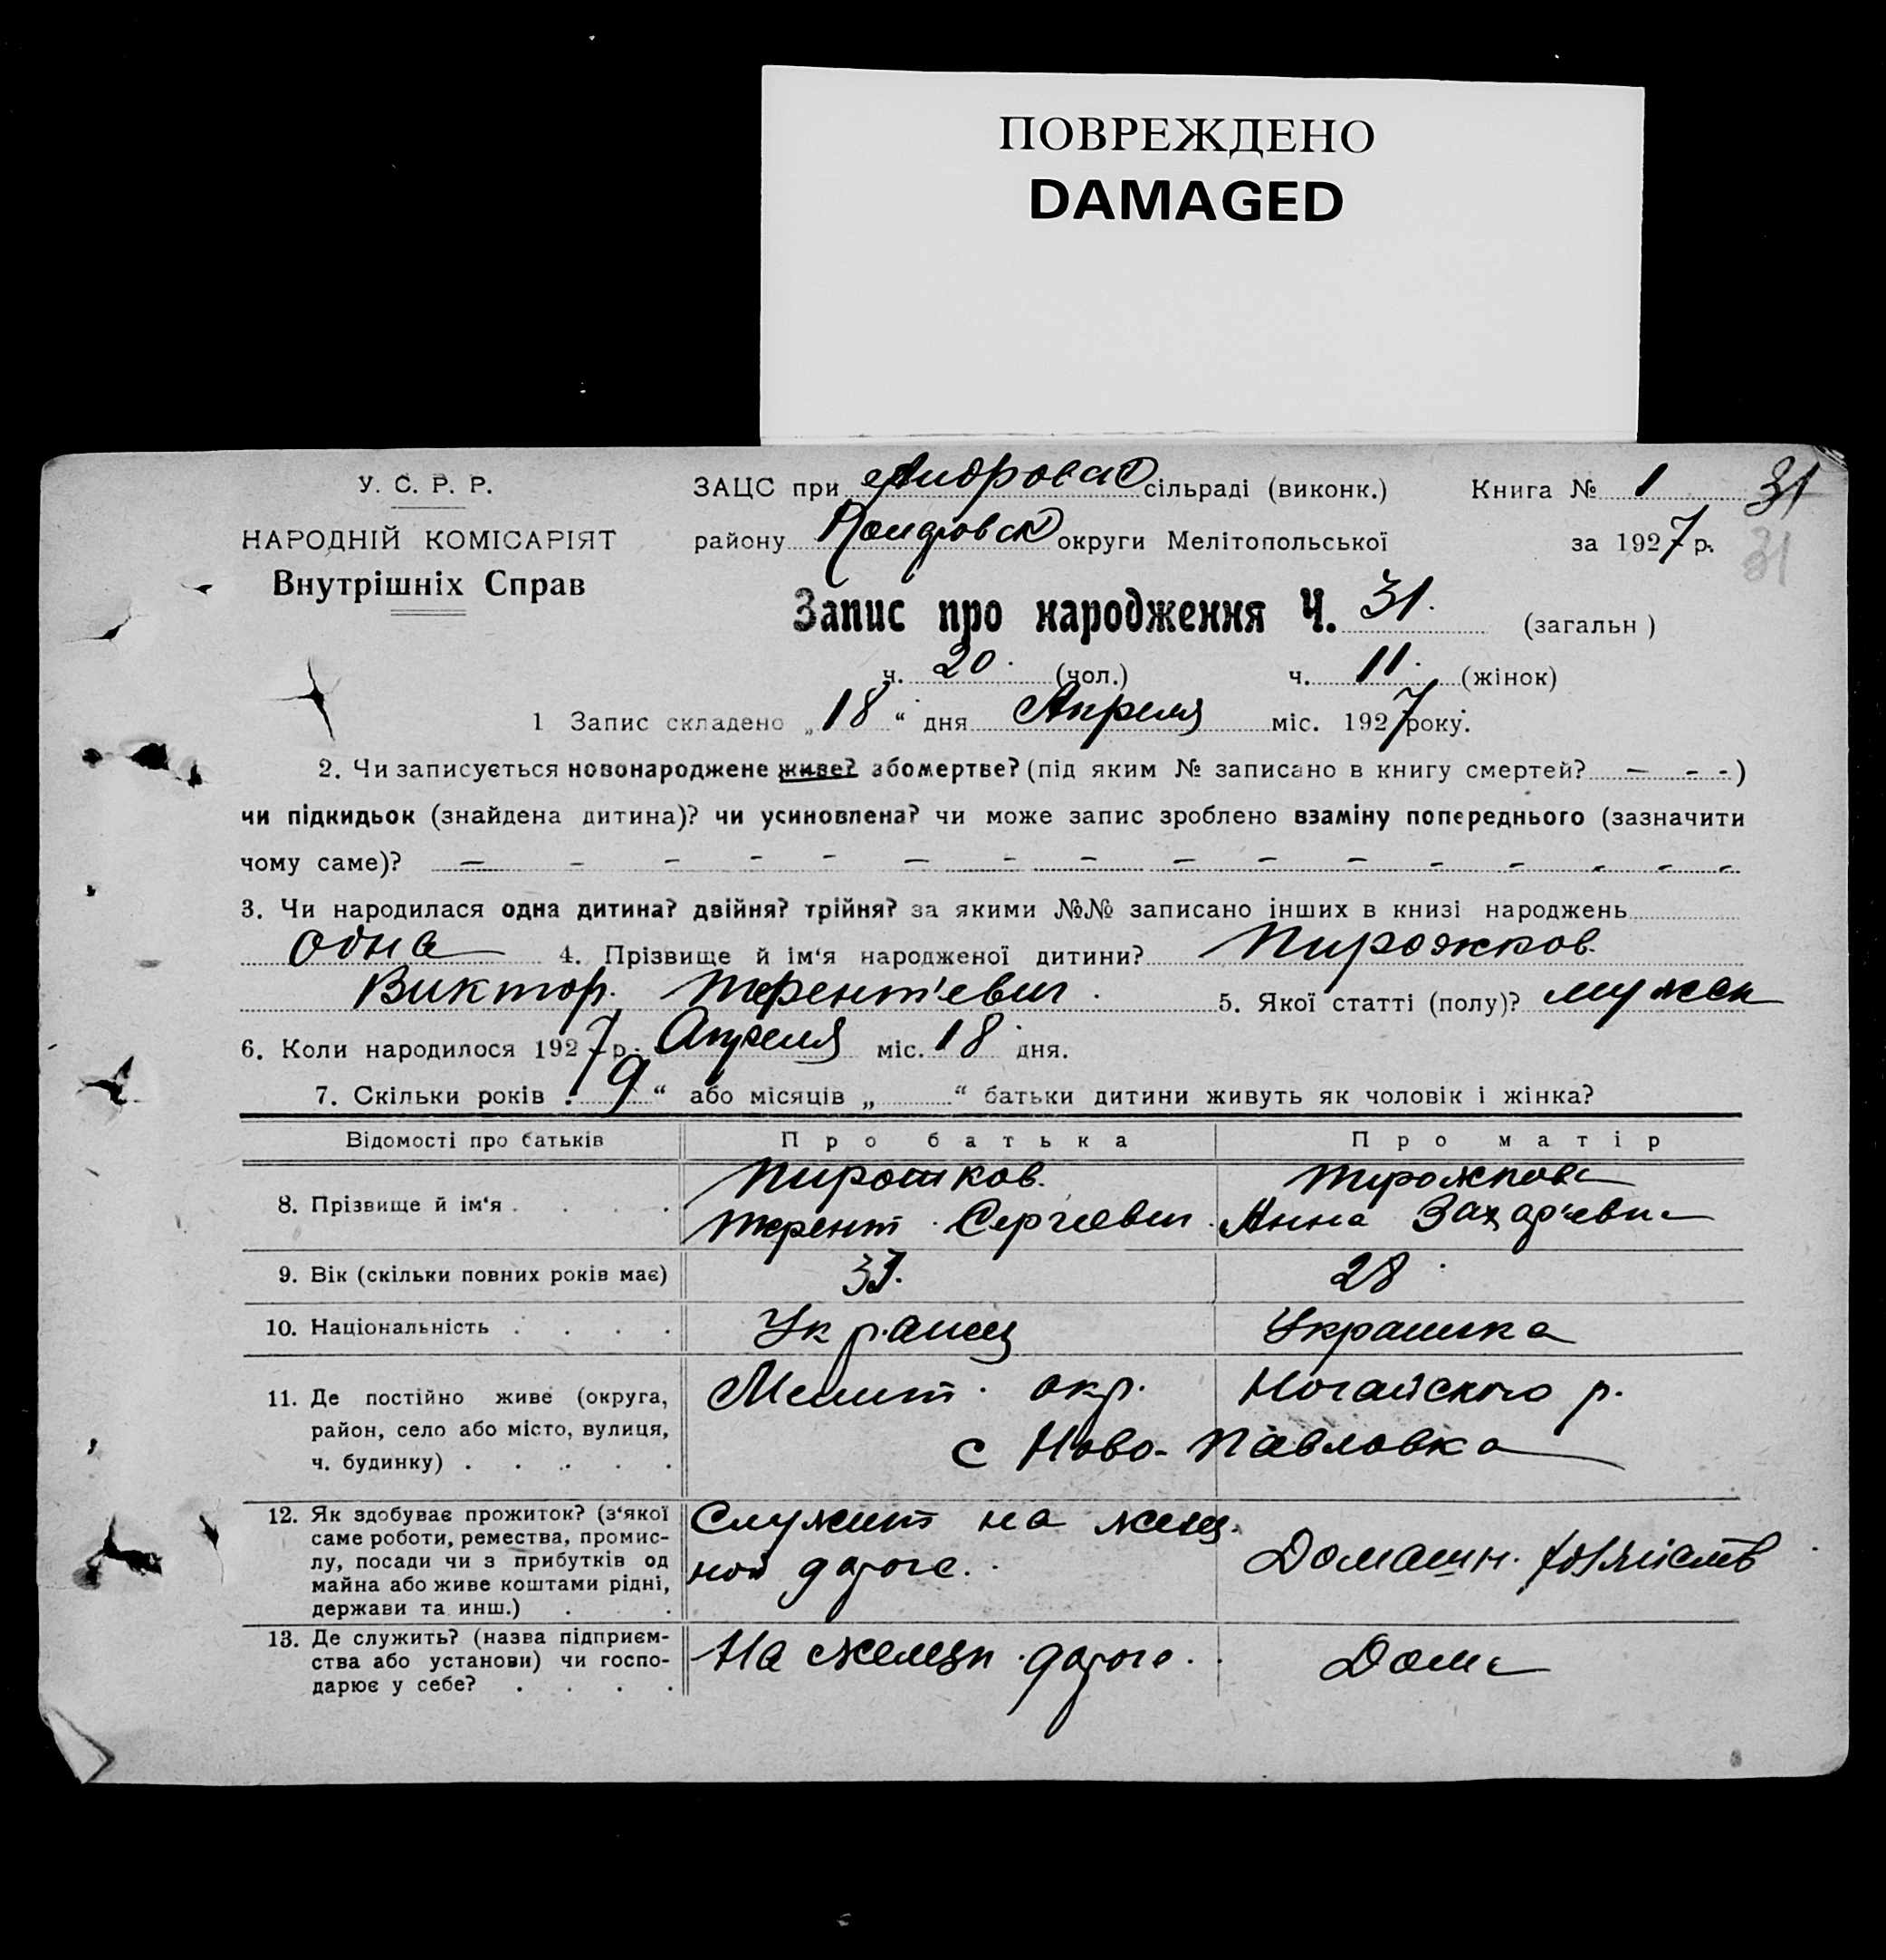 ПОВРЕЖДЕНО
DAMAGED
У. С. Р. Р. ЗАЦС при сільраді (виконк.) Книга № 1 31
НАРОДНІЙ КОМІСАРІЯТ району округи Мелітопольської за 1927 р. 31
Внутрішніх Справ
Запис про народження Ч. 31. (загальн )
ч. 20. (чол.) ч. 11. (жінок)
1 Запис складено „18“ дня Апреля міс. 1927 року.
2. Чи записується новонароджене живе? або мертве? (під яким № записано в книгу смертей? — - -)
чи підкидьок (знайдена дитина)? чи усиновлена? чи може запис зроблено взаміну попереднього (зазначити
чому саме)? — - - - - — - - - - - - - - - -
3. Чи народилася одна дитина? двійня? трійня? за якими №№ записано інших в книзі народжень
одна 4. Прізвище й ім‘я народженої дитини? Пирожков.
Виктор. Терент'евич. 5. Якої статті (полу)? мужск
6. Коли народилося 1927 р. Апреля міс. 18 дня.
7. Скільки років „9“ або місяців „ “ батьки дитини живуть як чоловік і жінка?
Відомості про батьків Про батька Про матір
8. Прізвище й ім‘я . . . . Пирожков. Пирожкова
Терент. Сергеевич. Анна Захар'евна
9. Вік (скільки повних років має) 28
10. Національність . . . . Украинец Украинка
11. Де постійно живе (округа, Мелит. окр. Ногайского р.
район, село або місто, вулиця, с Ново-Павловка
ч. будинку) . . . . .
12. Як здобуває прожиток? (з‘якої Служит на желез.
саме роботи, ремества, промис-
лу, посади чи з прибутків од ной дороге. Домашн.
майна або живе коштами рідні,
держави та инш.) . . .
13. Де служить? (назва підприєм- На железн. дороге. Дома
ства або установи) чи госпо-
дарює у себе? . . . .